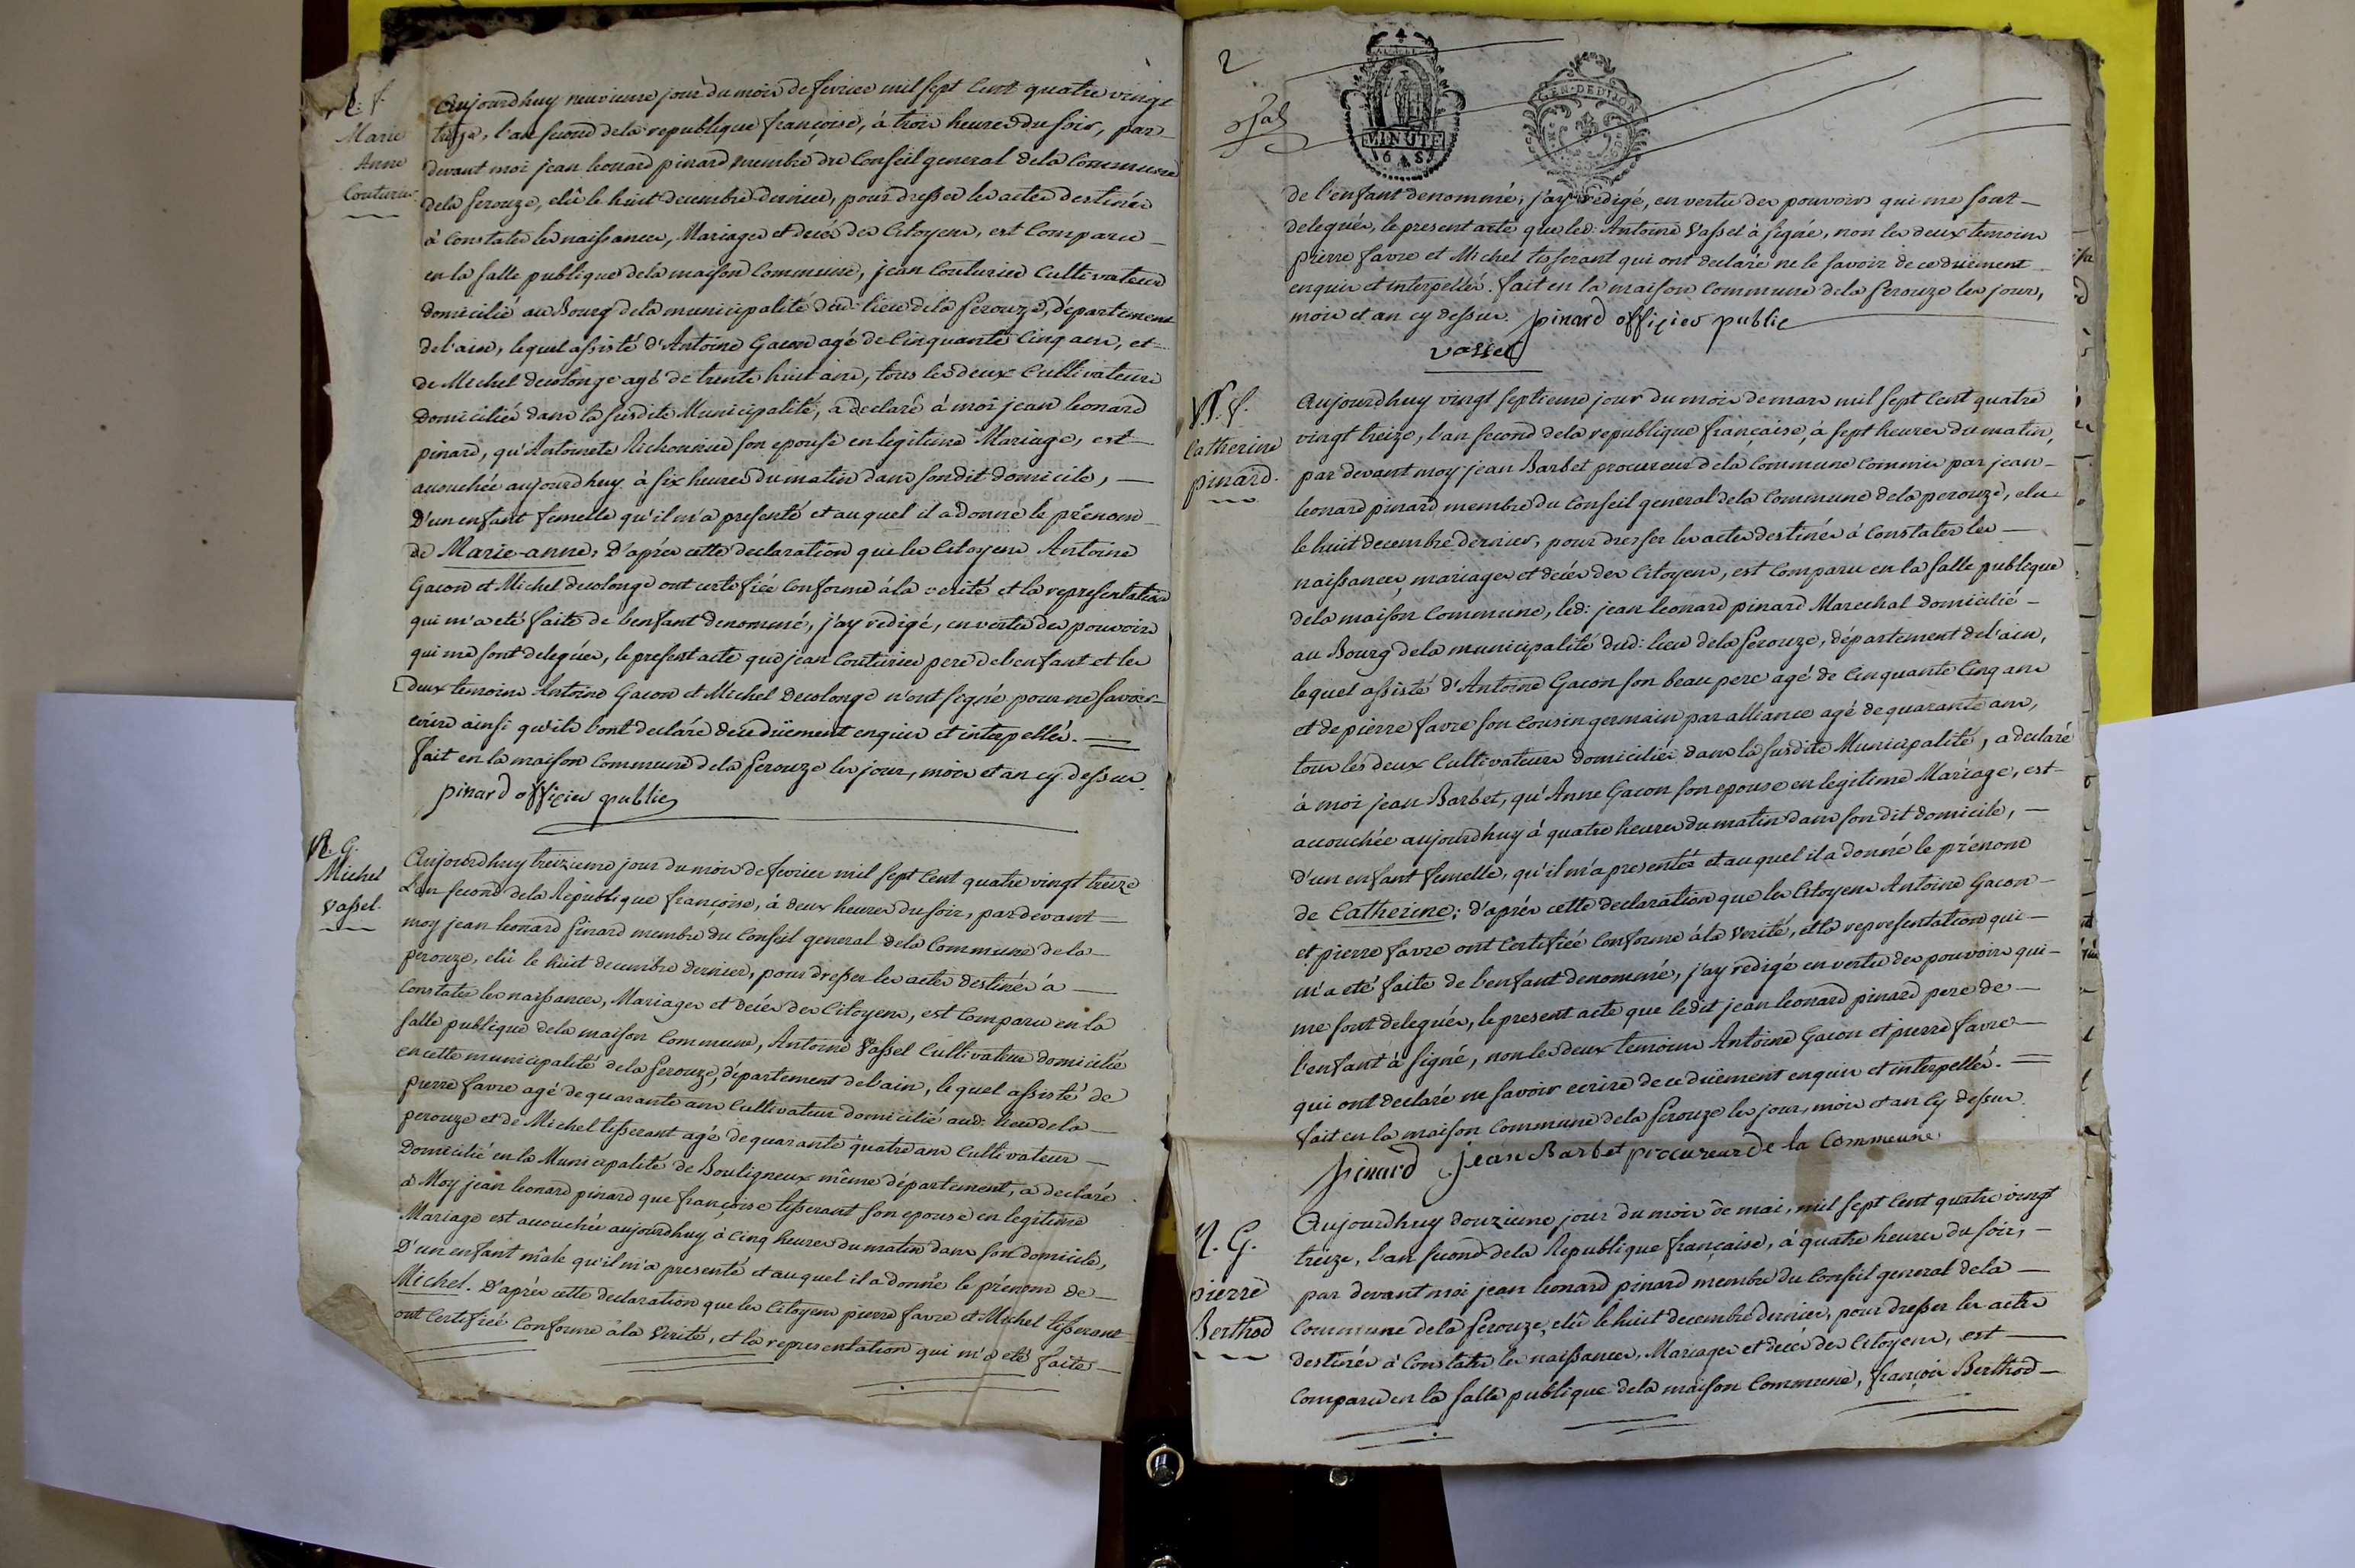 N. f.
Marie
Anne
Couturier
Aujourdhuy neuvieme jour du mois de fevrier mil sept Cent quatre vingt
treize, l'an second de la republique françoise, à trois heures du soir, par
devant moi jean leonard pinard membre du Conseil general de la Commune
de la perouze, elû le huit decembre dernier, pour dresser les actes destinés
à Constater les naissances, Mariages et decés des Citoyens, est Comparu
en la salle publique de la maison Commune, jean Couturier Cultivateur
domicilié au Bourg de la municipalité dud: lieu de la perouze, département
de l'ain, lequel assisté d'Antoine Gacon agé de Cinquante Cinq ans, et
de Michel decolonge agé de trente huit ans, tous les deux Cultivateurs
Domiciliés dans la susdite Municipalité, a declaré à moi jean leonard
pinard, qu'Antoinete Richonnier son epouse en legitime Mariage, est
acouchée aujourdhuy à six heures du matin dans son dit domicile,
D'un enfant femelle qu'il m'a presenté et auquel il a donné le prénom
de Marie-anne; D'après cette declaration que les Citoyens Antoine
Gacon et Michel decolonge ont certifiée Conforme à la verité et la representation
qui m'a eté faite de l'enfant denommé, j'ay redigé, en vertu des pouvoirs
qui me sont delegués, le present acte que jean Couturier pere de l'enfant et les
deux temoins Antoine Gacon et Michel Decolonge n'ont signé pour ne savoir
ecrire ainsi qu'ils l'ont declaré de ce düement enquis et interpellés.
fait en la maison Commune de la perouze les jour, mois et an cy-dessus.
pinard officier public
N. G.
Michel
Vassel.
Aujourdhuy treizieme jour du mois de fevrier mil sept Cent quatre vingt treize
L'an second de la Republique françoise, à deux heures du soir, par devant
moy jean leonard pinard membre du Conseil general de la Commune de la
perouze, elû le huit decembre dernier, pour dresser les actes destinés à
Constater les naissances, Mariages et decés des Citoyens, est Comparu en la
salle publique de la maison Commune, Antoine Vassel Cultivateur domicilié
en cette municipalité de la perouze, département de l'ain, lequel assisté de
pierre favre agé de quarante ans Cultivateur domicilié aud: lieu de la
perouze et de Michel tisserant agé de quarante quatre ans Cultivateur
Domicilié en la Municipalité de Bouligneux même département, a declaré
à Moy jean leonard pinard que françoise tisserant son epouse en legitime
Mariage est acouchée aujourdhuy à Cinq heures du matin dans son domicile,
D'un enfant mâle qu'il m'a presenté et auquel il a donné le prénom de
Michel. D'après cette declaration que les Citoyens pierre favre et Michel tisserant
ont Certifiée Conforme à la Verité, et la representation qui m'a eté faite
2
MINUTE
GEN. DE DIJON
de l'enfant denommé; j'ay redigé, en vertu des pouvoirs qui me sont
delegués, le present acte que led: Antoine Vassel à signé, non les deux temoins
pierre favre et Michel tisserant qui ont declaré ne le savoir de ce düement
enquis et interpellés. fait en la maison Commune de la perouze les jour,
mois et an cy dessus. pinard officier public
vassel
N. f.
Catherine
pinard.
Aujourdhuy vingt septieme jour du mois de mars mil sept Cent quatre
vingt treize, l'an second de la republique française, à sept heures du matin,
par devant moy jean Barbet procureur de la Commune Commis par jean
leonard pinard membre du Conseil general de la Commune de la perouze, elu
le huit decembre dernier, pour dresser les actes destinés à Constater les
naissances, mariages et decés des Citoyens, est Comparu en la salle publique
de la maison Commune, led: jean leonard pinard Marechal domicilié
au Bourg de la municipalité dud: lieu de la perouze, département de l'ain,
lequel assisté d'Antoine Gacon son beau pere agé de Cinquante Cinq ans
et de pierre favre son Cousin germain par alliance agé de quarante ans,
tous les deux Cultivateurs domiciliés dans la susdite Municipalité, a declaré
à moi jean Barbet, qu'Anne Gacon son epouse en legitime Mariage, est
acouchée aujourdhuy à quatre heures du matin dans son dit domicile,
d'un enfant femelle, qu'il m'a presentée et auquel il a donné le prénom
de Catherine; d'après cette declaration que les Citoyens Antoine Gacon
et pierre favre ont Certifiée Conforme à la Verité, et la representation qui
m'a eté faite de l'enfant denommé, j'ay redigé en vertu des pouvoirs qui
me sont delegués, le present acte que ledit jean leonard pinard pere de
l'enfant à signé, non les deux temoins Antoine Gacon et pierre favre
qui ont declaré ne savoir ecrire de ce düement enquis et interpellés.
fait en la maison Commune de la perouze les jour, mois et an Cy dessus.
pinard jean Barbet procureur de la Commeune
N. G.
pierre
Berthod
Aujourdhuy douzieme jour du mois de mai, mil sept Cent quatre vingt
treize, l'an second de la Republique française, à quatre heures du soir,
par devant moi jean leonard pinard membre du Conseil general de la
Commune de la perouze, elû le huit decembre dernier, pour dresser les actes
destinés à Constater les naissances, Mariages et decés des Citoyens, est
Comparu en la salle publique de la maison Commune, françois Berthod